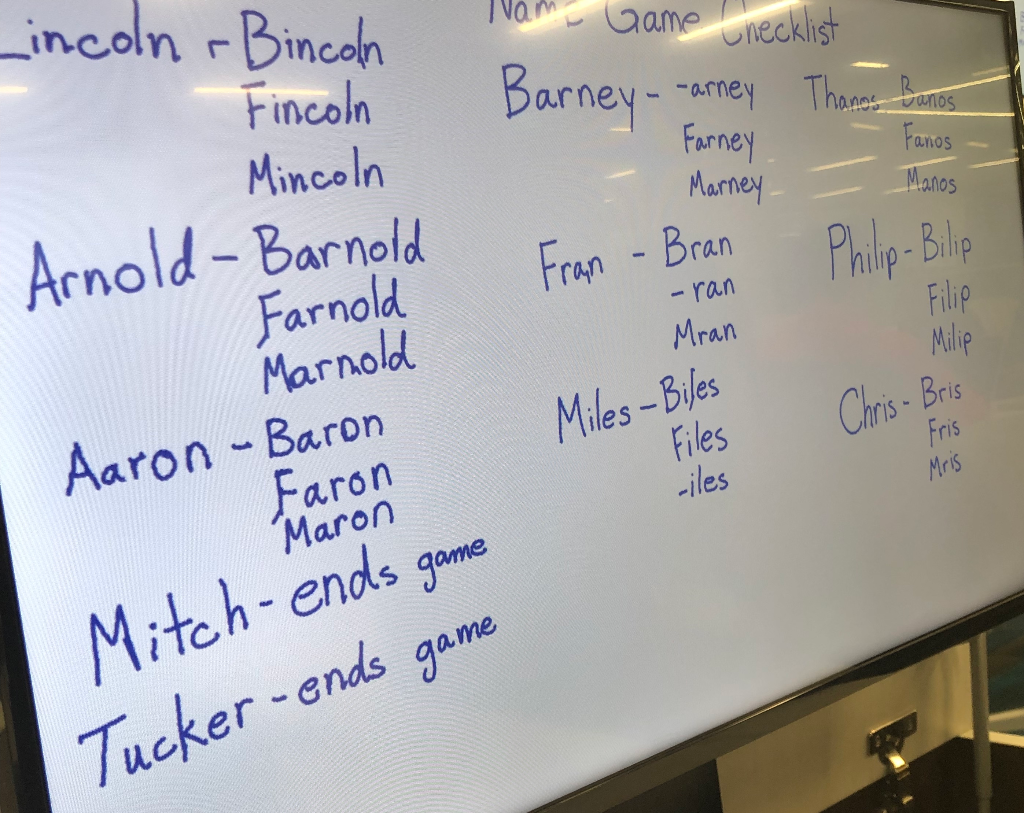 Name Game Checklist
Lincoln - Bincoln
Fincoln
Mincoln
Arnold - Barnold
Farnold
Marnold
Aaron - Baron
Faron
Maron
Mitch - ends game
Tucker - ends game
Barney - -arney
Farney
Marney
Fran - Bran
-ran
Mran
Miles - Biles
Files
-iles
Thanos Banos
Fanos
Manos
Philip - Bilip
Filip
Milip
Chris - Bris
Fris
Mris